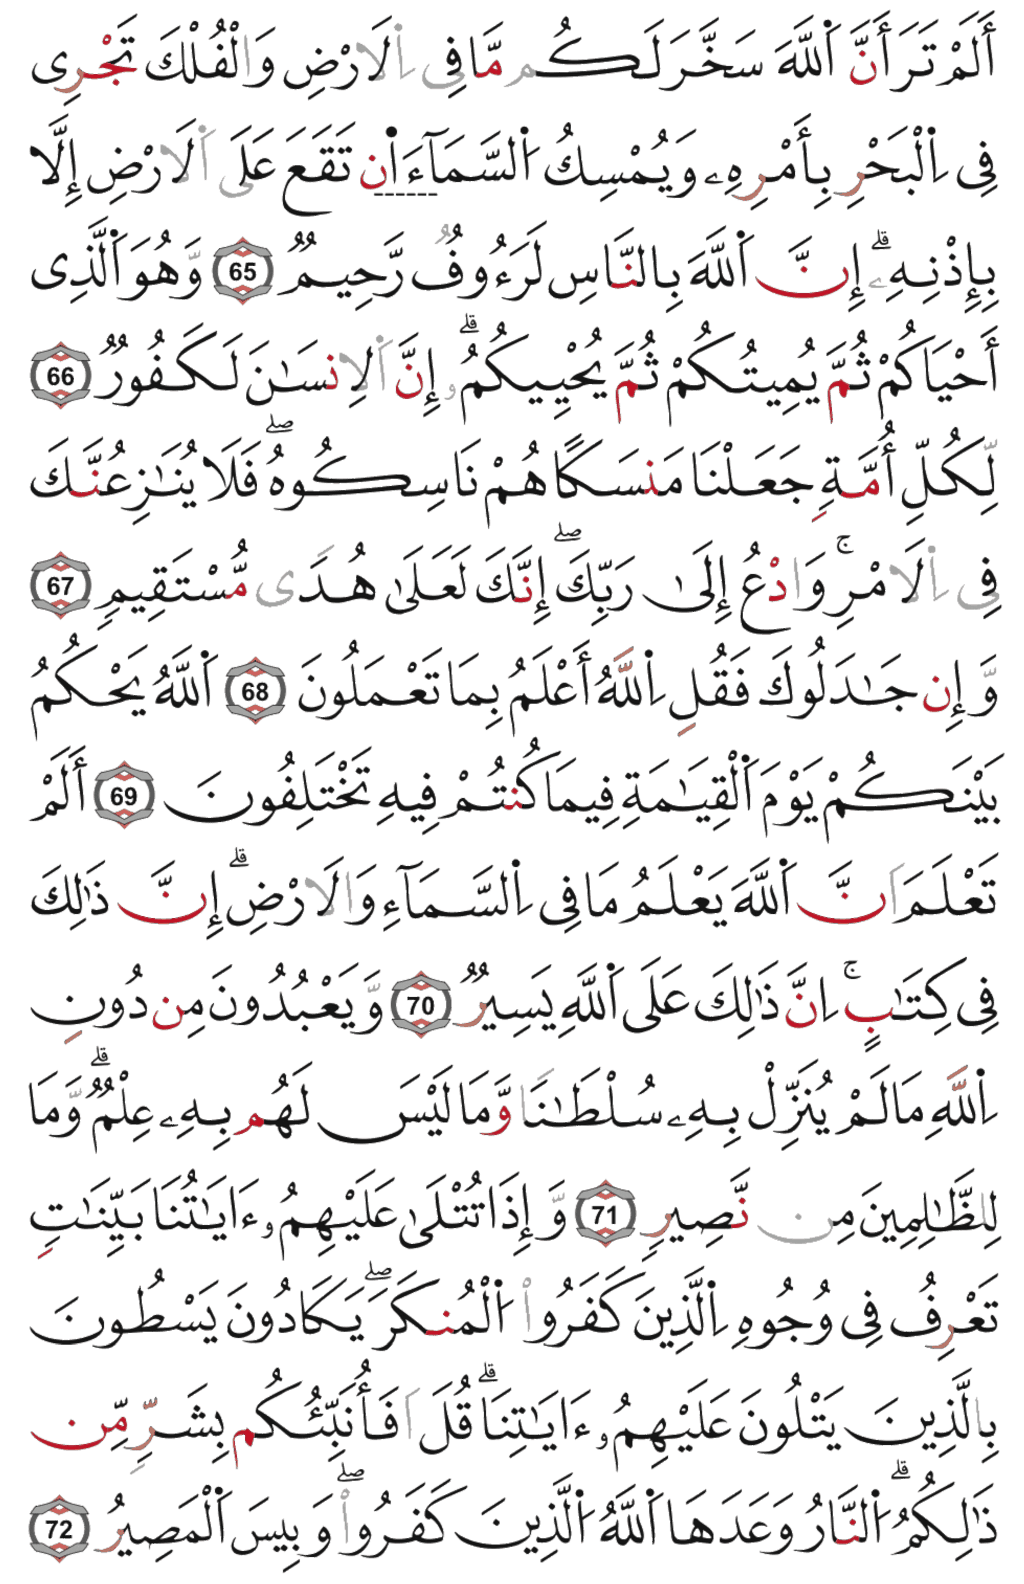 أَلَمْ تَرَ أَنَّ اَ۬للَّهَ سَخَّرَ لَكُم مَّا فِى اِ۬لَارْضِ وَالْفُلْكَ تَجْرِى
فِى اِ۬لْبَحْرِ بِأَمْرِهِۦ وَيُمْسِكُ اُ۬لسَّمَآءَ ا۬ن تَقَعَ عَلَى اَ۬لَارْضِ إِلَّا
بِإِذْنِهِۦۗ إِنَّ اَ۬للَّهَ بِالنَّاسِ لَرَءُوفٌ رَّحِيمٌ 65 وَّهُوَ اَ۬لَّذِى
أَحْيَاكُمْ ثُمَّ يُمِيتُكُمْ ثُمَّ يُحْيِيكُمُۥٓۗ إِنَّ اَ۬لِانسَٰنَ لَكَفُورٌ 66
لِّكُلِّ أُمَّةٍ جَعَلْنَا مَنسَكًا هُمْ نَاسِكُوهُۖ فَلَا يُنَٰزِعُنَّكَ
فِى اِ۬لَامْرِۚ وَادْعُ إِلَىٰ رَبِّكَۖ إِنَّكَ لَعَلَىٰ هُدًى مُّسْتَقِيمٍ 67
وَّإِن جَٰدَلُوكَ فَقُلِ اِ۬للَّهُ أَعْلَمُ بِمَا تَعْمَلُونَ 68 اَ۬للَّهُ يَحْكُمُ
بَيْنَكُمْ يَوْمَ اَ۬لْقِيَٰمَةِ فِيمَا كُنتُمْ فِيهِ تَخْتَلِفُونَ 69 أَلَمْ
تَعْلَمَ اَنَّ اَ۬للَّهَ يَعْلَمُ مَا فِى اِ۬لسَّمَآءِ وَالَارْضِۗ إِنَّ ذَٰلِكَ
فِى كِتَٰبٍۚ اِنَّ ذَٰلِكَ عَلَى اَ۬للَّهِ يَسِيرٌ 70 وَّيَعْبُدُونَ مِن دُونِ
اِ۬للَّهِ مَا لَمْ يُنَزِّلْ بِهِۦ سُلْطَٰنًا وَّمَا لَيْسَ لَهُم بِهِۦ عِلْمٌۗ وَّمَا
لِلظَّٰلِمِينَ مِن نَّصِيرٍ 71 وَّإِذَا تُتْلَىٰ عَلَيْهِمُۥٓ ءَايَٰتُنَا بَيِّنَٰتٍ
تَعْرِفُ فِى وُجُوهِ اِ۬لَّذِينَ كَفَرُوا۟ اُ۬لْمُنكَرَۖ يَكَادُونَ يَسْطُونَ
بِالَّذِينَ يَتْلُونَ عَلَيْهِمُۥٓ ءَايَٰتِنَاۗ قُلَ اَفَأُنَبِّئُكُم بِشَرٍّ مِّن
ذَٰلِكُمُۗ اُ۬لنَّارُ وَعَدَهَا اَ۬للَّهُ اُ۬لَّذِينَ كَفَرُوا۟ۖ وَبِيسَ اَ۬لْمَصِيرُ 72